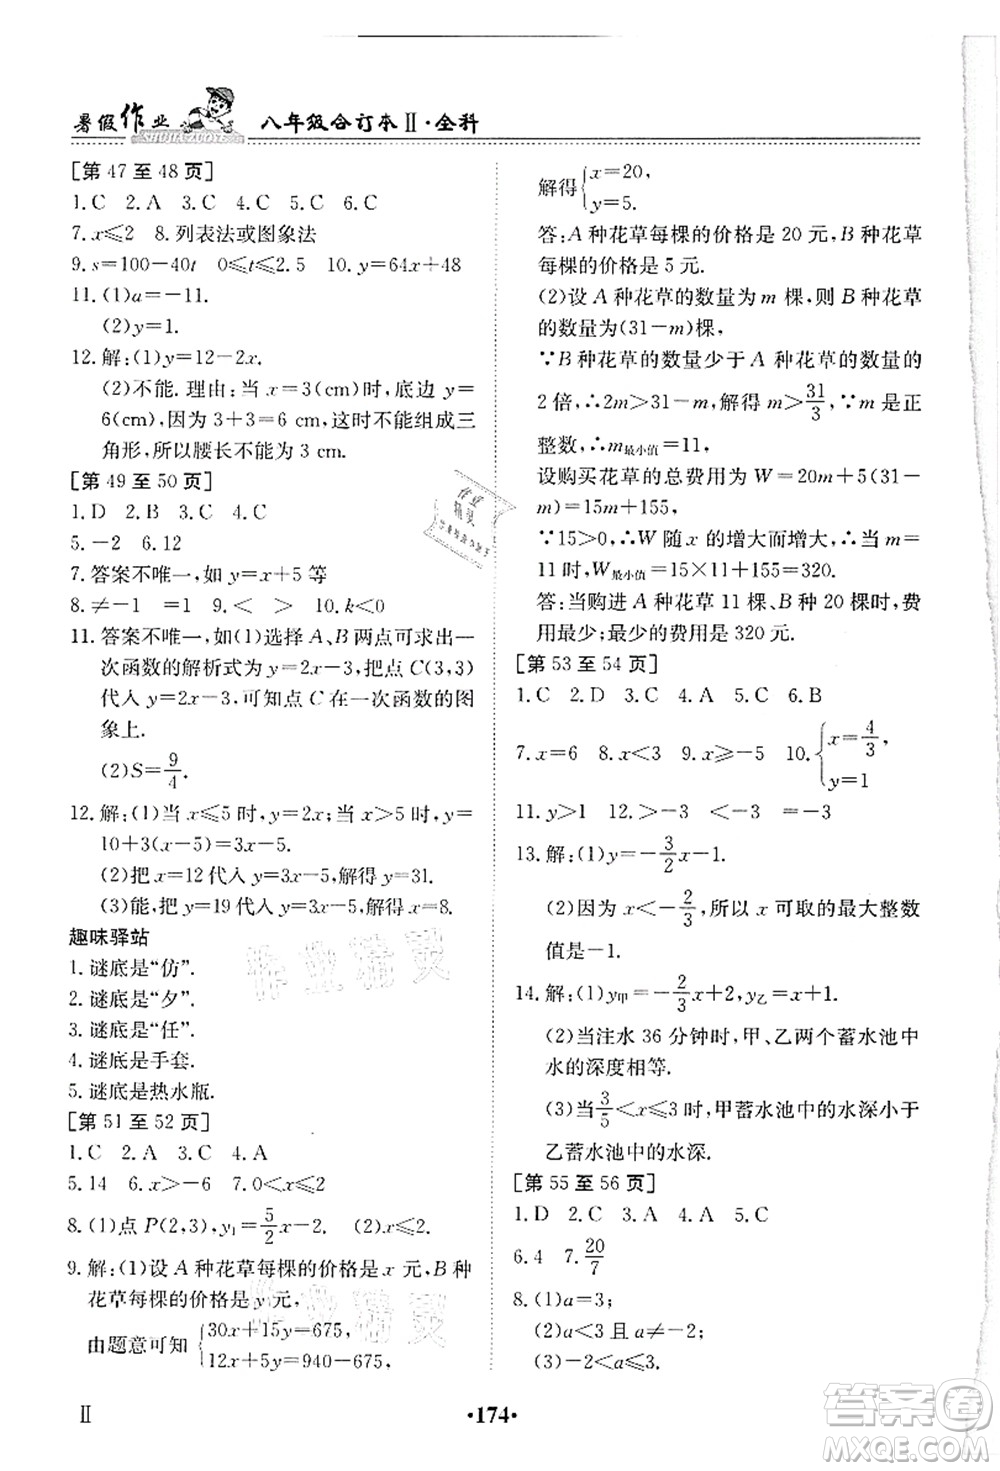 暑假作业
SHUJIAZUOYE
八年级合订本Ⅱ·全科
[第 47 至 48 页]
1. C 2. A 3. C 4. C 5. B 6. C
7. x≤2 8. 列表法或图象法
9. s=100-40t 0≤t≤2.5 10. y=64x+48
11. (1)a=-11.
(2)y=1.
12. 解:(1)y=12-2x.
(2)不能. 理由:当 x=3(cm)时,底边 y=
6(cm),因为 3+3=6 cm,这时不能组成三
角形,所以腰长不能为 3 cm.
[第 49 至 50 页]
1. D 2. B 3. C 4. C
5. -2 6. 12
7. 答案不唯一,如 y=x+5 等
8. ≠-1 =1 9. < > 10. k<0
11. 答案不唯一,如(1)选择 A、B 两点可求出一
次函数的解析式为 y=2x-3,把点 C(3,3)
代入 y=2x-3,可知点 C 在一次函数的图
象上.
(2)S=9/4.
12. 解:(1)当 x≤5 时,y=2x;当 x>5 时,y=
10+3(x-5)=3x-5.
(2)把 x=12 代入 y=3x-5,解得 y=31.
(3)能,把 y=19 代入 y=3x-5,解得 x=8.
趣味驿站
1. 谜底是“仿”.
2. 谜底是“夕”.
3. 谜底是“任”.
4. 谜底是手套.
5. 谜底是热水瓶.
[第 51 至 52 页]
1. C 2. A 3. C 4. A
5. 14 6. x>-6 7. 2
8. (1)点 P(2,3),y₁=5/2x-2. (2)x≤2.
9. 解:(1)设 A 种花草每棵的价格是 x 元,B 种
花草每棵的价格是 y 元,
由题意可知 {30x+15y=675,
12x+5y=940-675,
解得 {x=20,
y=5.
答:A 种花草每棵的价格是 20 元,B 种花
草每棵的价格是 5 元.
(2)设 A 种花草的数量为 m 棵,则 B 种花草
的数量为(31-m)棵,
∵B 种花草的数量少于 A 种花草的数量的
2 倍,∴2m>31-m,解得 m>31/3,∵m 是正
整数,∴m最小值=11,
设购买花草的总费用为 W=20m+5(31-
m)=15m+155,
∵15>0,∴W 随 x 的增大而增大,当 m=
11 时,W最小值=15×11+155=320(元).
答:当购进 A 种花草 11 棵、B 种 20 棵时,费
用最少;最少的费用是 320 元.
[第 53 至 54 页]
1. C 2. D 3. C 4. A 5. C 6. B
7. x=6 8. x<3 9. x≥-5 10. {x=4/3,
y=1
11. y>1 12. >-3 <-3 =-3
13. 解:(1)y=-3/2x-1.
(2)因为 x<-2/3,所以 x 可取的最大整数
值是-1.
14. 解:(1)y甲=-2/3x+2,y乙=x+1.
(2)当注水 36 分钟时,甲、乙两个蓄水池中
水的深度相等.
(3)当3/5<x≤3 时,甲蓄水池中的水深小于
乙蓄水池中的水深.
[第 55 至 56 页]
1. D 2. C 3. A 4. D 5. C
6. 4 7. 20/7
8. (1)a=3;
(2)a<3 且 a≠-2;
(3)-2<a≤3.
Ⅱ
·174·
作业精灵
作业精灵
作业精灵
答案圈
MXQE.COM